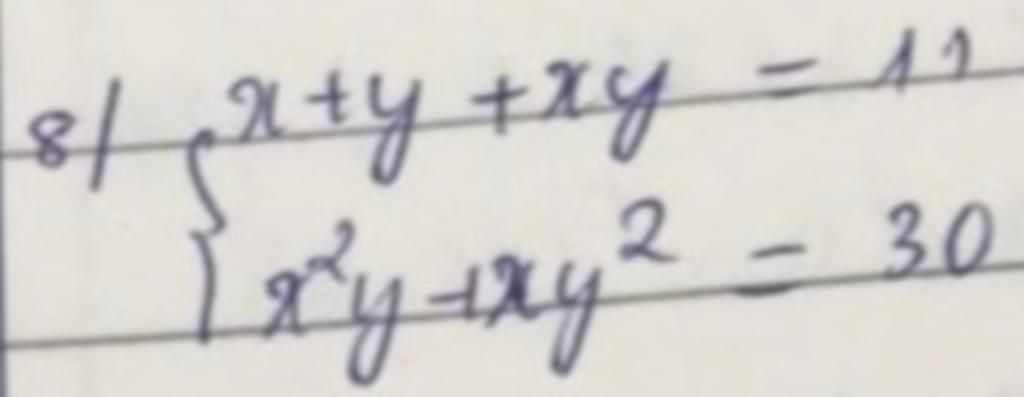 8/ { x + y + xy = 11
x²y + xy² = 30